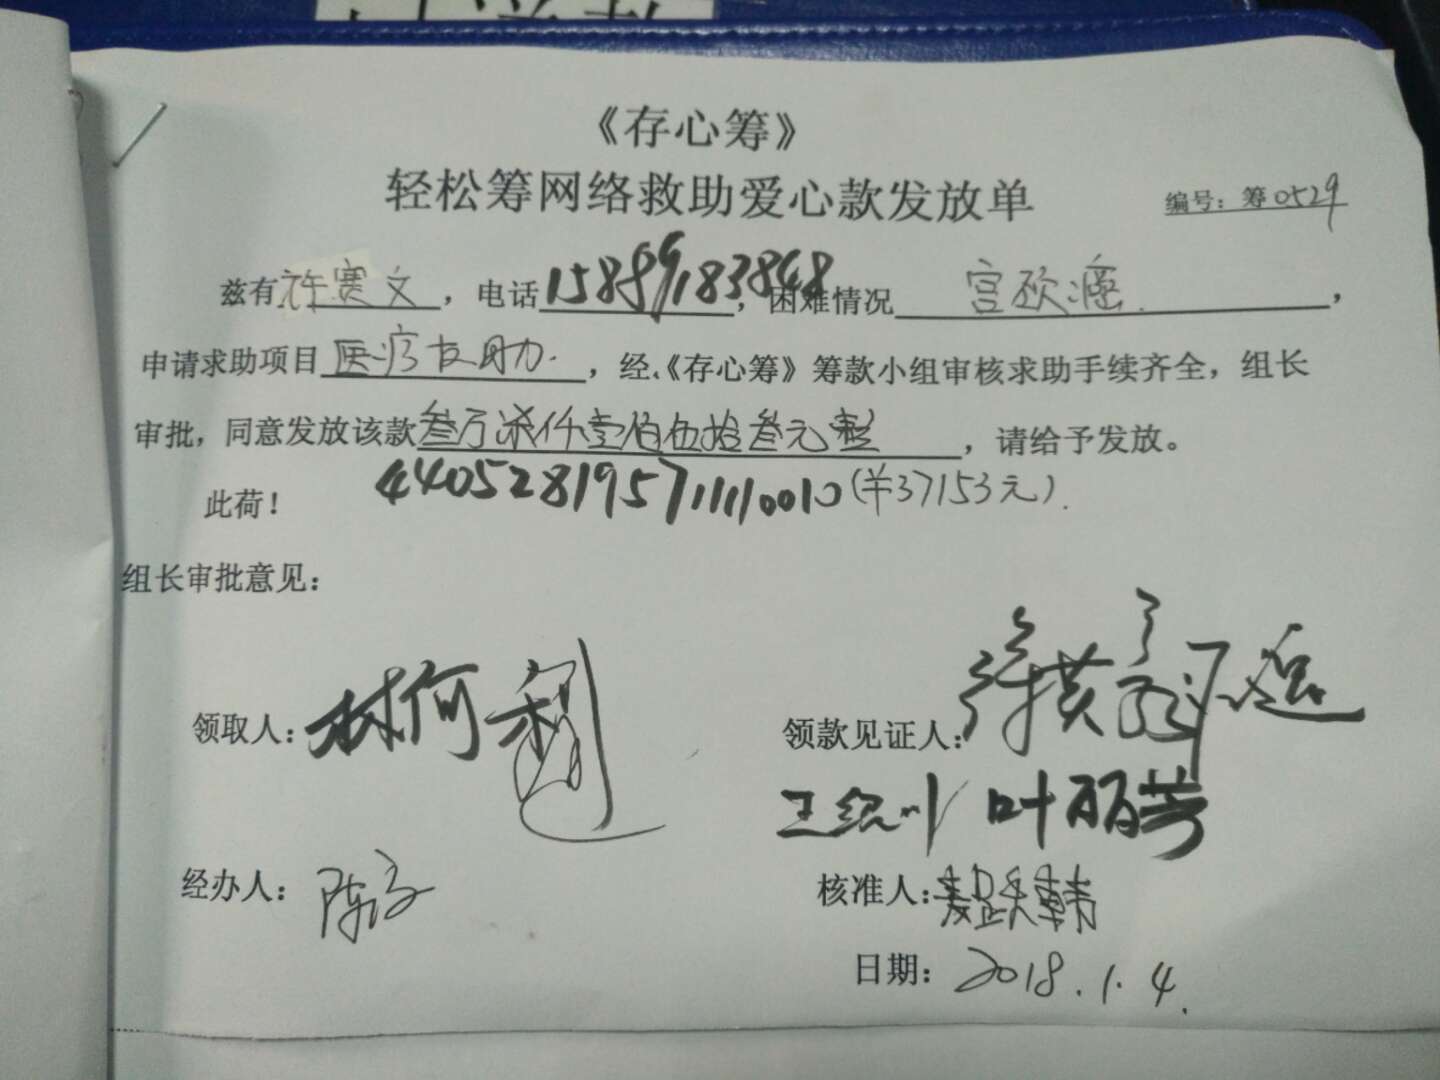 《存心筹》
轻松筹网络救助爱心款发放单
编号：筹0529
兹有许赛文，电话15889183848，困难情况宫颈癌，
申请求助项目医疗救助，经《存心筹》筹款小组审核求助手续齐全，组长
审批，同意发放该款叁万柒仟壹佰伍拾叁元整，请给予发放。
此荷！ 440528195711110010（￥37153元）
组长审批意见：
领取人：林何
领款见证人：
叶丽芳
经办人：陈
核准人：
日期：2018.1.4.